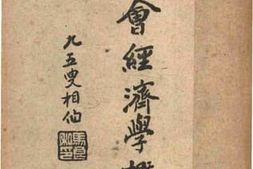 會經濟學
九五叟相伯